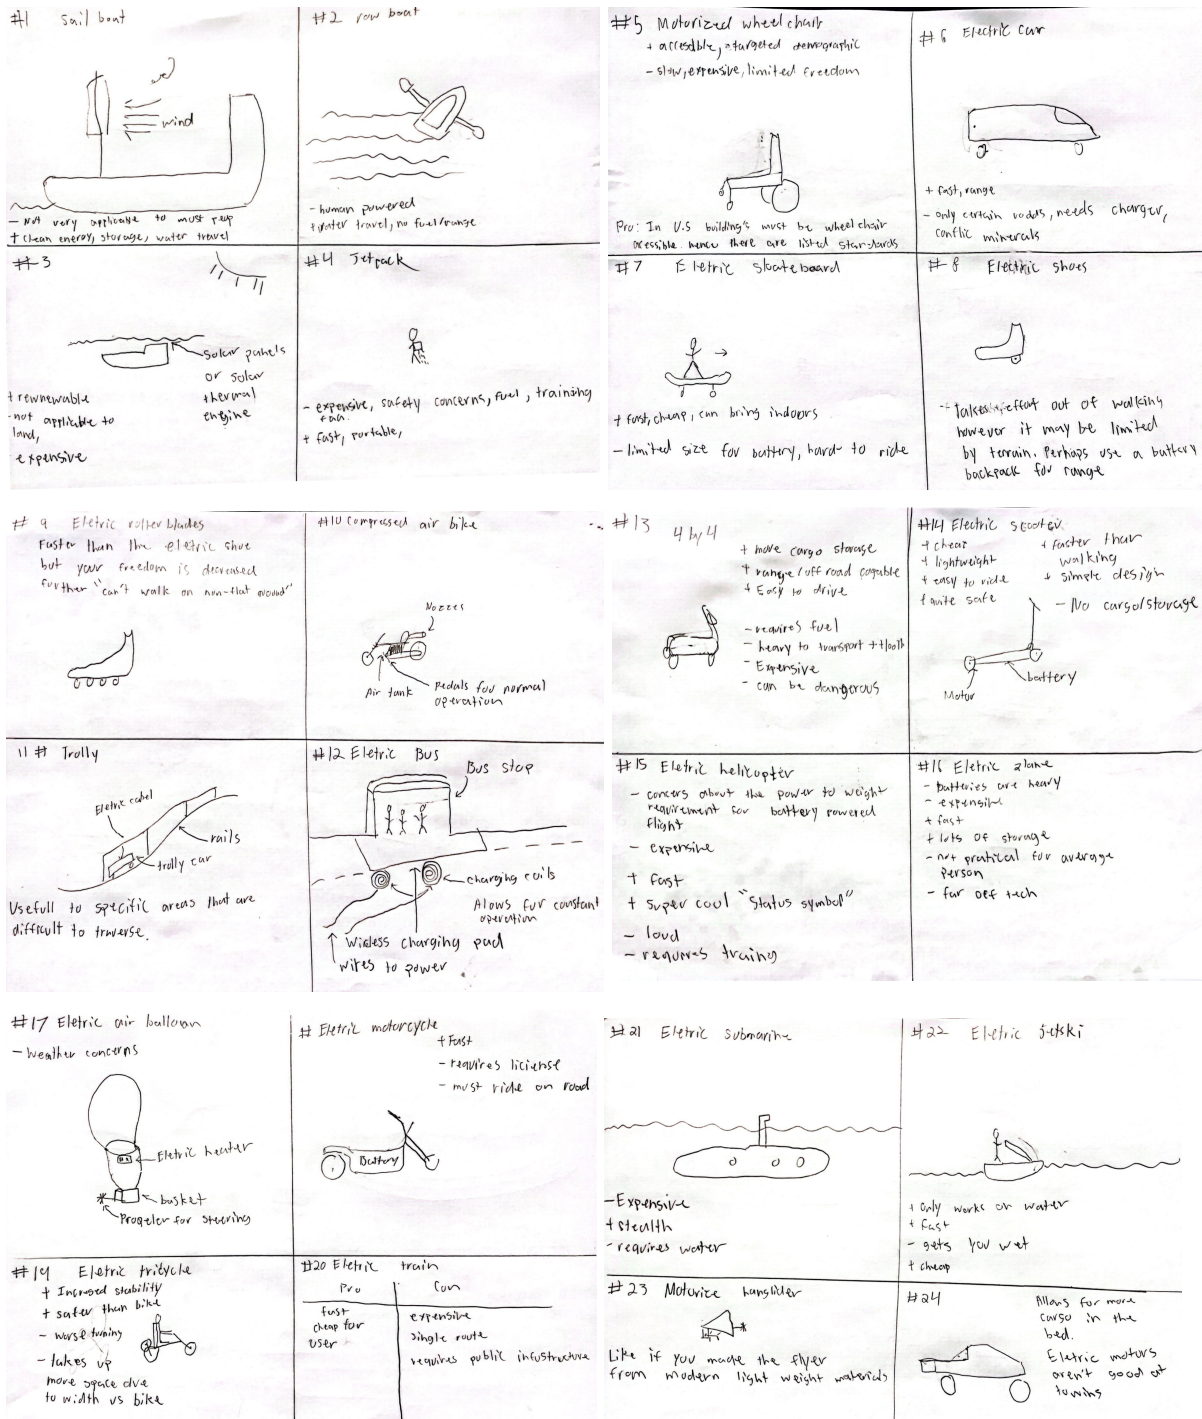 #1 Sail boat
wind
- Not very applicable to must peop
+ clean energy, storage, water travel
#2 row boat
- human powered
+ water travel, no fuel/range
#3
Solar panels
or solar
thermal
engine
+ rewnewable
- not applicable to
land,
expensive
#4 Jetpack
- expensive, safety concerns, fuel, training
faa.
+ fast, portable,
#5 Motorized wheel chair
+ accesible, targeted demographic
- slow, expensive, limited freedom
Pro: In U.S building's must be wheel chair
acessible hence there are listed standards
#6 Electric car
+ fast, range
- only certain roads, needs charger,
conflic minerals
#7 Eletric skateboard
+ fast, cheap, can bring indoors
- limited size for battery, hard to ride
#8 Electric shoes
Takes effort out of walking
however it may be limited
by terrain. Perhaps use a battery
backpack for range
#9 Eletric rollerblades
Faster than the eletric shoe
but your freedom is decreased
further "can't walk on non-flat ground"
#10 Compressed air bike
Nozzes
Air tank
Pedals for normal
operation
11 # Trolly
Eletric cabel
rails
trolly car
Usefull to specific areas that are
difficult to traverse.
#12 Eletric Bus
Bus stop
charging coils
Alows for constant
operation
Wireless charging pad
wires to power
#13 4 by 4
+ more cargo storage
+ range/off road capable
+ Easy to drive
- requires fuel
- heavy to transport
- Expensive
- can be dangerous
#14 Electric scooter
+ cheap
+ lightweight
+ easy to ride
+ quite safe
+ faster than
walking
+ simple design
- No cargo/storage
battery
Motor
#15 Eletric helicopter
- concers about the power to weight
requirement for battery powered
flight
- expensive
+ fast
+ super cool "Status symbol"
- loud
- requires traing
#16 Eletric plane
- batteries are heavy
- expensive
+ fast
+ lots of storage
- not pratical for average
person
- far off tech
#17 Eletric air balloon
- weather concerns
Eletric heater
basket
Propeler for steering
# Eletric motorcycle
+ Fast
- requires liciense
- must ride on road
Battery
#19 Eletric tricycle
+ Incresed stability
+ safer than bike
- worse turning
- takes up
more space due
to width vs bike
#20 Eletric train
Pro
Con
fast
cheap for
user
expensive
single route
requires public infustructure
#21 Eletric submarine
- Expensive
+ stealth
- requires water
#22 Eletric jetski
+ Only works on water
+ fast
- gets you wet
+ cheap
#23 Motorize hanglider
Like if you made the flyer
from modern light weight waterials
#24
Allows for more
cargo in the
bed.
Eletric motors
aren't good at
towing